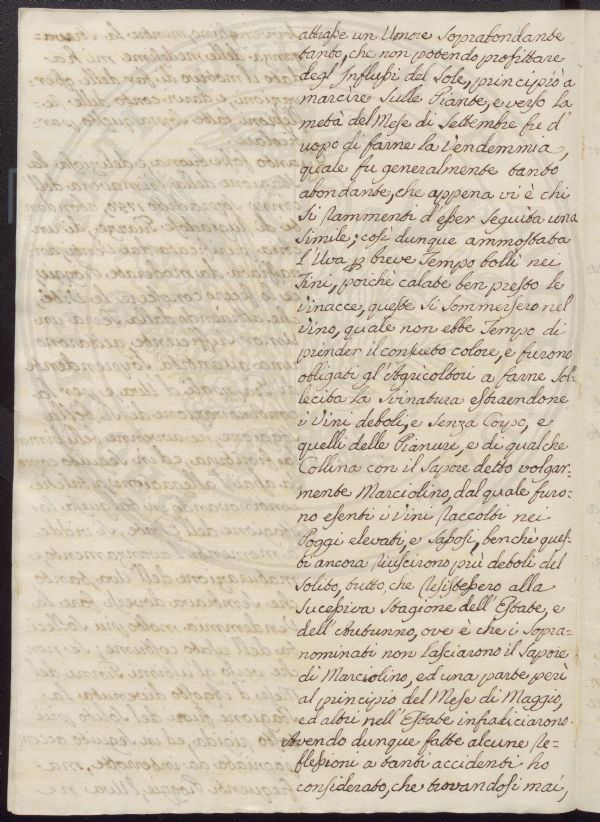 attrasse un Umore Soprabondante
tanto, che non potendo profittare
degl'Influssi del Sole, principiò a
marcire Sulle Piante, e verso La
metà del Mese di Settembre fu d'
uopo di farne la Vendemmia,
quale fu generalmente tanto
abondante, che appena vi è chi
Si Rammenti d'esser Seguita una
Simile; così dunque ammostata
l'Uva p breve Tempo bollì nei
Tini, poichè calate ben presto le
Vinacce, queste Si Sommersero nel
Vino, quale non ebbe Tempo di
prender il consueto colore, e furono
obligati gl'Agricoltori a farne Sol=
lecita la Svinatura estraendone
i Vini deboli, e Senza Corpo, e
quelli delle Pianure, e di qualche
Collina con il Sapore detto volgar=
mente Marciolino, dal quale furo=
no esenti i Vini Raccolti nei
Poggi elevati, e Sassosi, benchè ques=
ti ancora Riuscirono più deboli del
Solito, tutto, che Resistessero alla
Sucessiva Stagione dell'Estate, e
dell'Autunno, ove è che i Sopra=
nominati non Lasciarono il Sapore
di Marciolino, ed una parte perì
al principio del Mese di Maggio,
ed altri nell'Estate infradiciarono.
Avendo dunque fatte alcune Re=
flessioni a tanti accidenti ho
considerato, che trovandosi mai,